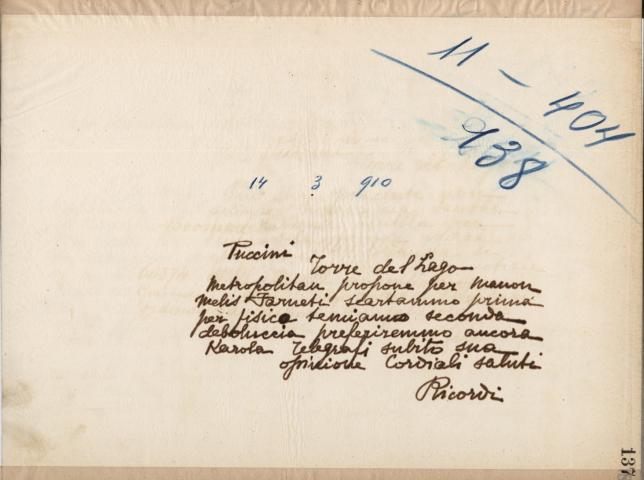 11 - 404
938
14 3 910
Puccini
Torre del Lago
Metropolitan propone per Manon
Melis Farneti scartammo prima
per fisico temiamo seconda
deboluccia preferiremmo ancora
Karola Telegrafi subito sua
opinione Cordiali saluti
Ricordi
137